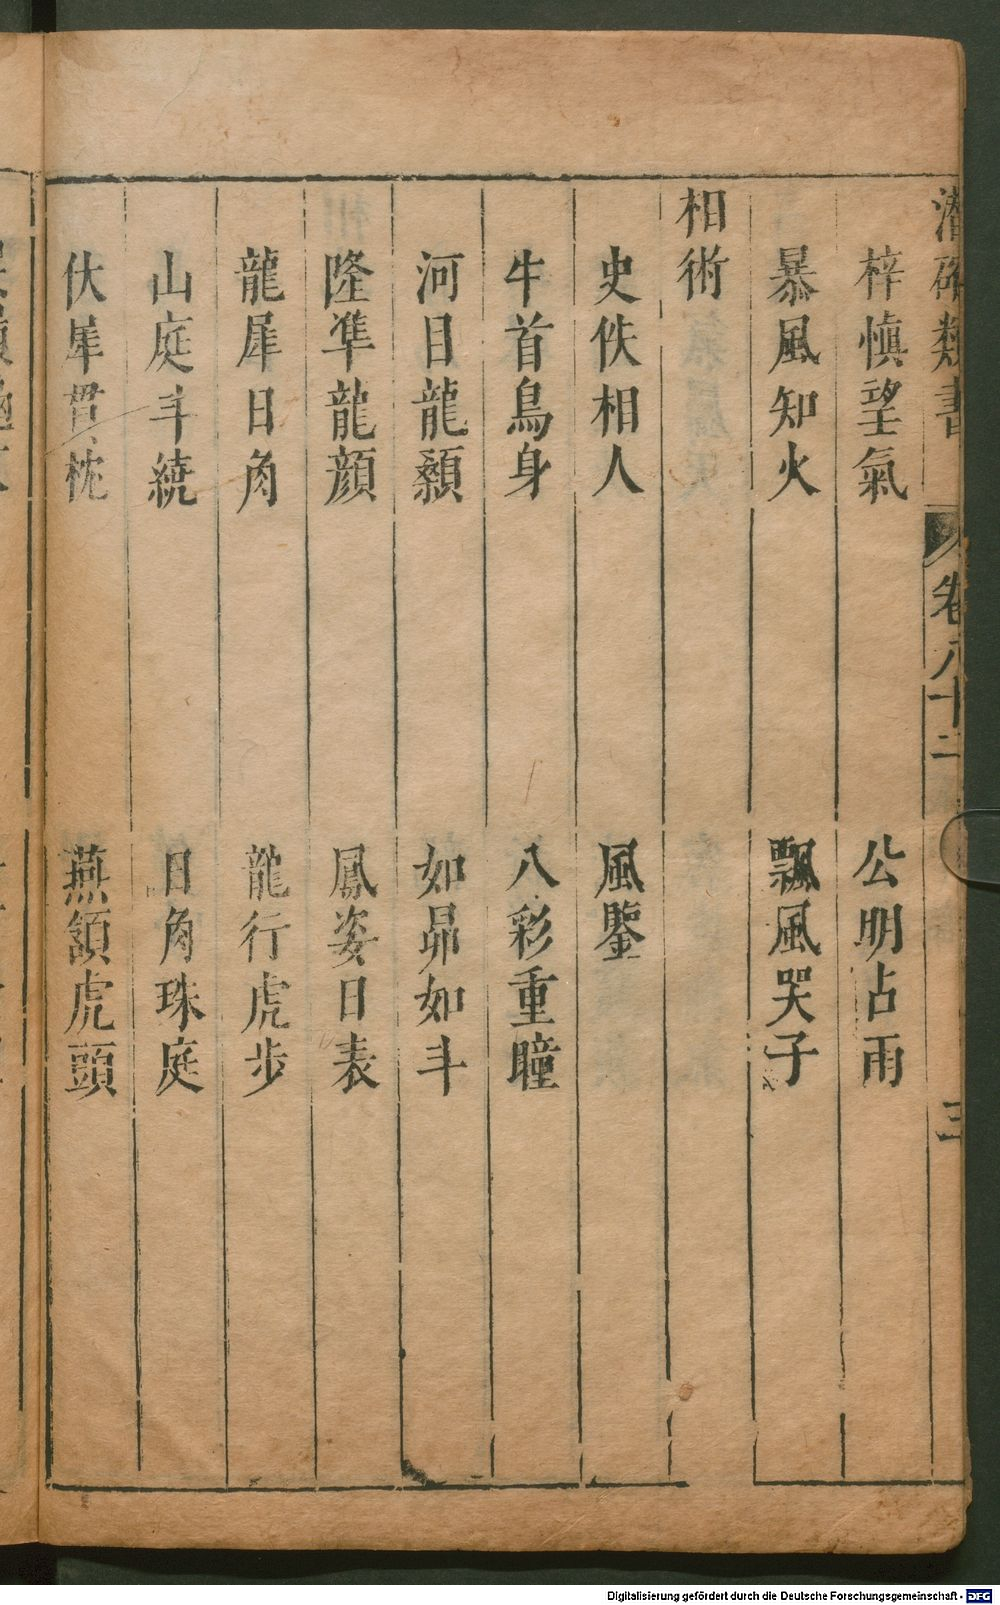 潛確類書 卷八十二 三
梓慎望氣 公明占雨
暴風知火 飄風哭子
相術
史佚相人 風鑒
牛首鳥身 八彩重瞳
河目龍顙 如昴如斗
隆準龍顔 鳳姿日表
龍犀日角 龍行虎步
山庭斗繞 日角珠庭
伏犀貫枕 燕頷虎頭
Digitalisierung gefördert durch die Deutsche Forschungsgemeinschaft - DFG